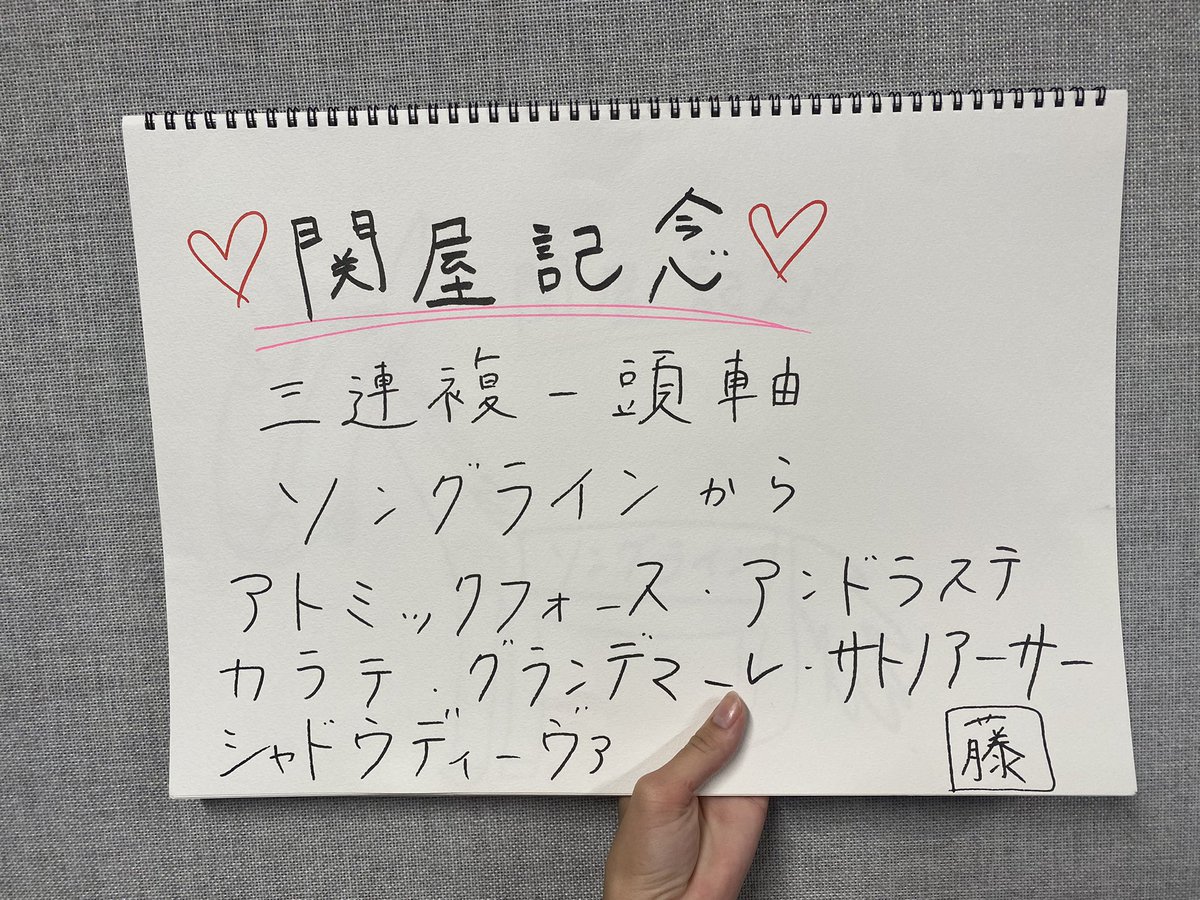 関屋記念
三連複一頭軸
ソングラインから
アトミックフォース・アンドラステ
カラテ・グランデマーレ・サトノアーサー
シャドウディーヴァ
藤